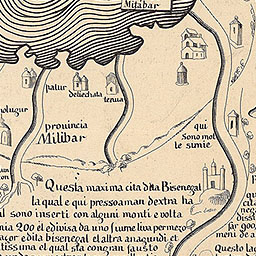 Milibar
patur
deliechata
terua
molugur
provincia
Milibar
qui
Sono molte simie
Questa maxima cita dita Bisenegal
la qual e qui pressoaman dextra ha
sono inserti con alguni monti e volta
200 el edivisa da uno fiume liva per mezo
dita bisenegal et altra anagundi et
tissima el qual sta con gran fausto
Questo la
far 900
moni de a